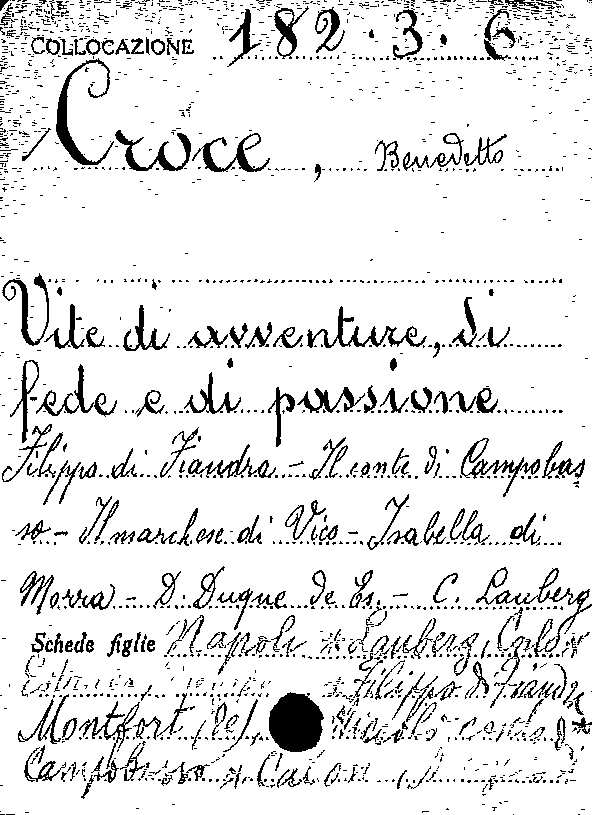 COLLOCAZIONE 182.3.6
Croce, Benedetto
Vite di avventure, di
fede e di passione
Filippo di Fiandra - Il conte di Campobas
so - Il marchese di Vico - Isabella di
Morra - D. Duque de Es. - C. Lauberg
Schede figlie Napoli * Lauberg, Carlo *
* Filippo di Fiandra *
Montfort (de), Niccolò conte di
Campobasso *